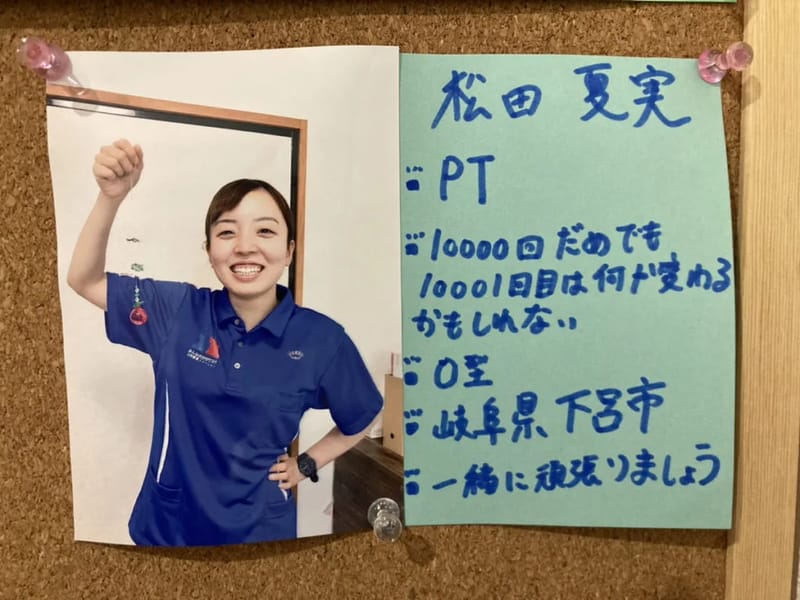 松田 夏実
PT
10000回だめでも
10001日目は何か変わる
かもしれない
O型
岐阜県下呂市
一緒に頑張りましょう